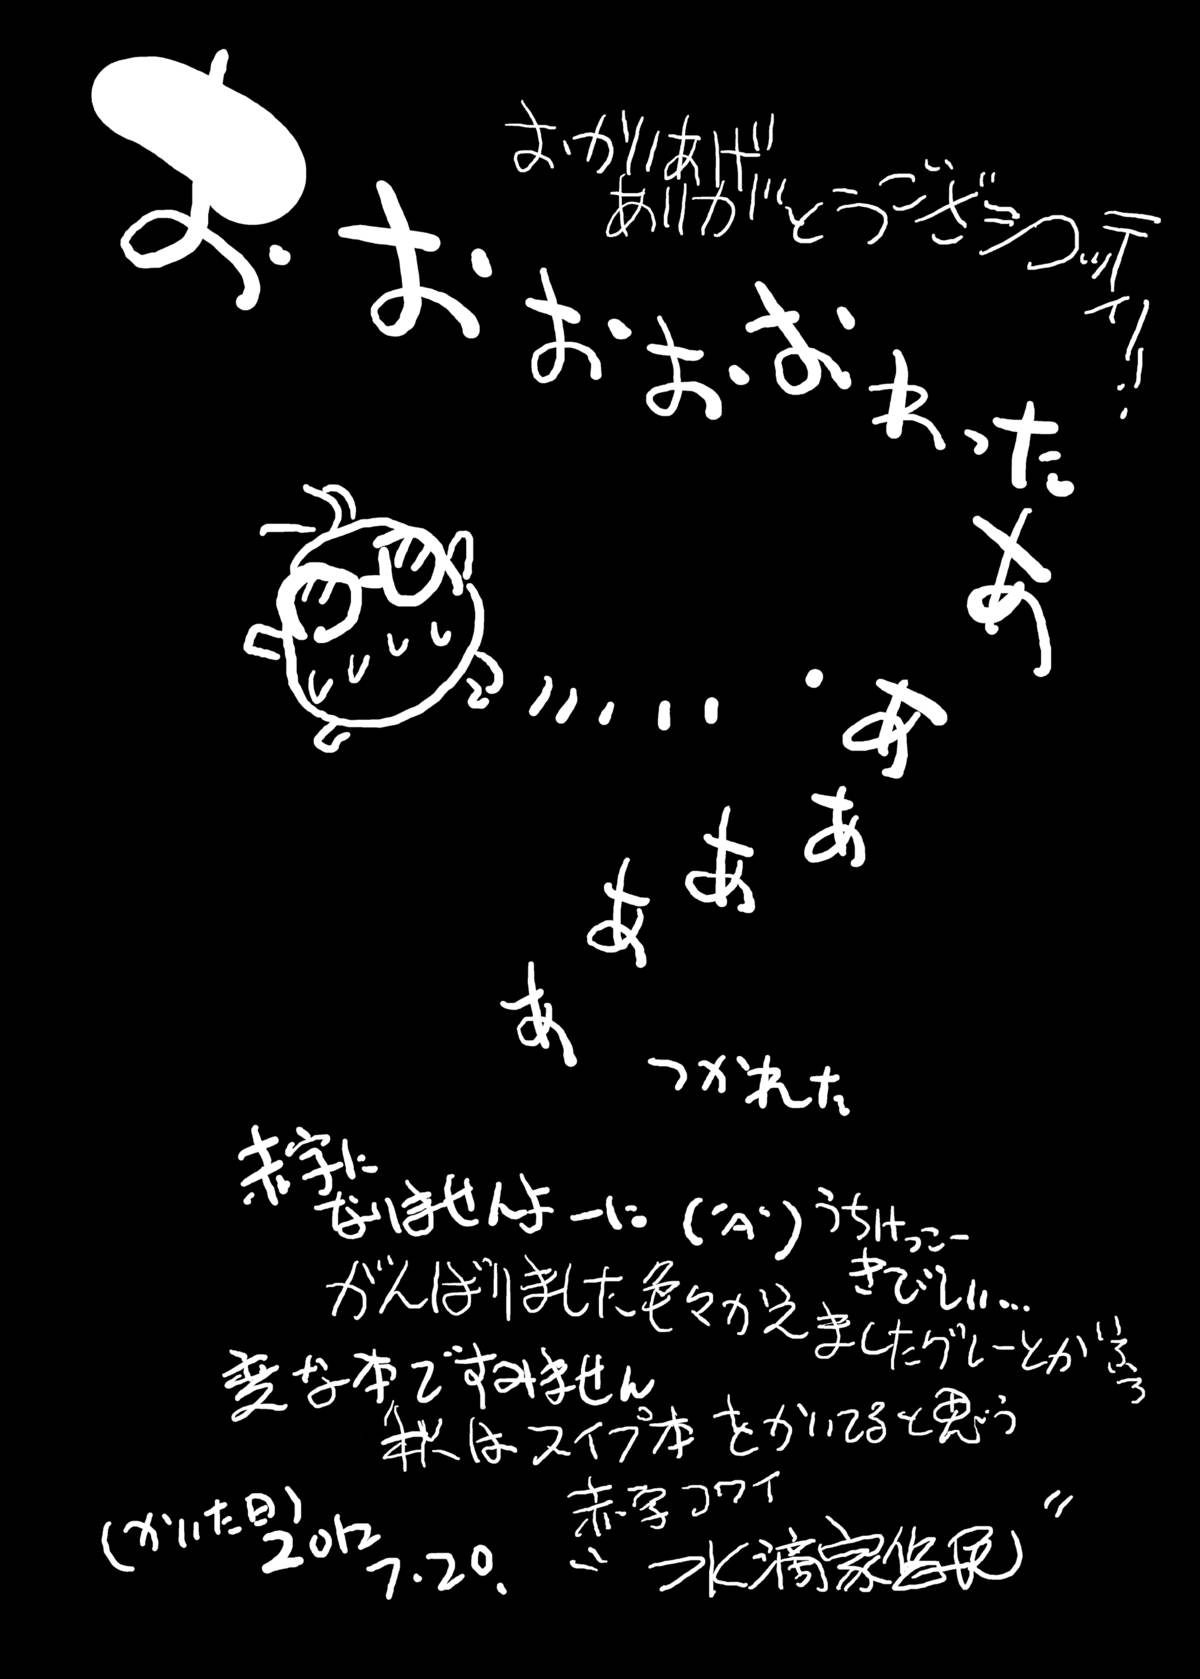 おかいあげ
ありがとうござシコッティ!!
お・おおおおわった
あ
あ
あ
あ
あ
あ
つかれた
赤字に
なりませんよーに(´A`)うちけっこー
きびしい…
がんばりました色々かえましたグレーとかいろ
変な本ですみません
私はスイプ本をかいてると思う
赤字コワイ
(かいた日)
2012
7.20.
水滴家住民